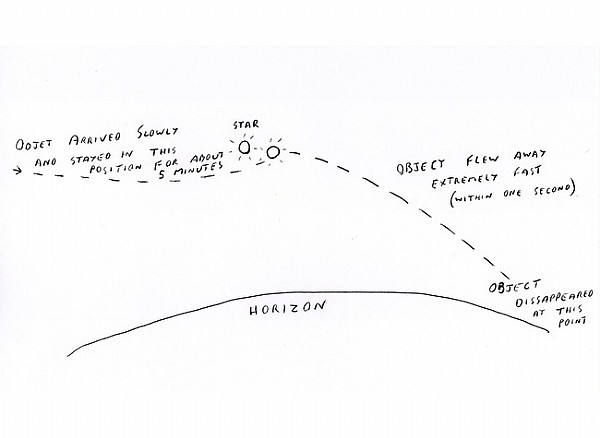 OOJET ARRIVED SLOWLY
AND STAYED IN THIS
POSITION FOR ABOUT
5 MINUTES
STAR
OBJECT FLEW AWAY
EXTREMELY FAST
(WITHIN ONE SECOND)
OBJECT
DISSAPPEARED
AT THIS
POINT
HORIZON